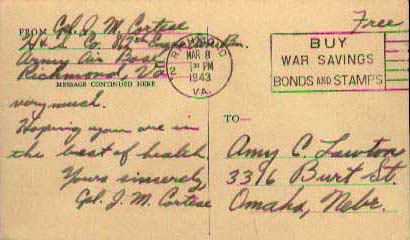 FROM Cpl. J. M. Cortese
H & S Co. 867th Engr. Avn. Bn.
Army Air Base
Richmond, Va.
MESSAGE CONTINUED HERE
very much.
Hoping you are in
the best of health.
Yours sincerely,
Cpl. J. M. Cortese
RICHMOND
2
MAR 8
PM
1943
VA.
Free
BUY
WAR SAVINGS
BONDS AND STAMPS
TO—
Amy C. Lawton
3316 Burt St.
Omaha, Nebr.